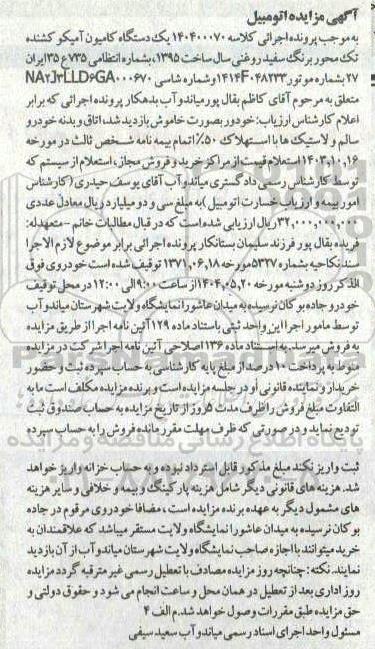 آگهی مزایده اتومبیل
به موجب پرونده اجرائی کلاسه ۱۴۰۴۰۰۰۷۰ یک دستگاه کامیون آمیکو کشنده
تک محور برنگ سفید روغنی سال ساخت ۱۳۹۵، بشماره انتظامی ۷۳۵ ع ۳۵ ایران
۲۷ بشماره موتور ۱۴۱۴F۰۴۸۲۳۳ و شماره شاسی NA۲J۳LLD۶GA۰۰۰۶۷۰
متعلق به مرحوم آقای کاظم بقال پور میاندوآب بدهکار پرونده اجرائی که برابر
اعلام کارشناس ارزیاب: خودرو بصورت خاموش بازدید شد، اتاق و بدنه خودرو
سالم و لاستیک ها با استهلاک ۵۰٪ اتمام بیمه نامه شخص ثالث در مورخه
۱۴۰۳,۱۰,۱۶ استعلام قیمت از مراکز خرید و فروش مجاز، استعلام از سیستم که
توسط کارشناس رسمی دادگستری میاندوآب آقای یوسف حیدری (کارشناس
امور بیمه و ارزیاب خسارت اتومبیل) به مبلغ سی و دو میلیارد ریال معادل عددی
۳۲,۰۰۰,۰۰۰,۰۰۰ ریال ارزیابی شده است که در قبال مطالبات خانم -متعهدله:
فریده بقال پور فرزند سلیمان بستانکار پرونده اجرائی برابر موضوع لازم الاجرا
سند نکاحیه بشماره ۵۳۲۷ مورخه ۱۳۷۱,۰۶,۱۸ توقیف شده است خودروی فوق
الذکر روز دوشنبه مورخه ۱۴۰۴,۰۵,۲۰ از ساعت ۹:۰۰ الی ۱۲:۰۰ در محل توقیف
خودرو جاده بوکان نرسیده به میدان عاشورا نمایشگاه ولایت شهرستان میاندوآب
توسط مامور اجرا این واحد ثبتی باستناد ماده ۱۲۹ آئین نامه اجرا از طریق مزایده
به فروش میرسد. به استناد ماده ۱۳۶ اصلاحی آئین نامه اجرا شرکت در مزایده
منوط به پرداخت ۱۰ درصد از مبلغ پایه کارشناسی به حساب سپرده ثبت و حضور
خریدار و نماینده قانونی او در جلسه مزایده است و برنده مزایده مکلف است مابه
التفاوت مبلغ فروش را ظرف مدت ۵ روز از تاریخ مزایده به حساب صندوق ثبت
تودیع نماید و در صورتی که ظرف مهلت مقرر مانده فروش را به حساب سپرده
ثبت واریز نکند مبلغ مذکور قابل استرداد نبوده و به حساب خزانه واریز خواهد
شد. هزینه های قانونی دیگر شامل هزینه پارکینگ و بیمه و خلافی و سایر هزینه
های مشمول دیگر به عهده برنده مزایده است، مضافا خودروی مرقوم در جاده
بوکان نرسیده به میدان عاشورا نمایشگاه ولایت مستقر میباشد که علاقمندان به
خرید میتوانند با اجازه صاحب نمایشگاه ولایت شهرستان میاندوآب از آن بازدید
نمایند. نکته: چنانچه روز مزایده مصادف با تعطیل رسمی غیر مترقبه گردد مزایده
روز اداری بعد از تعطیل در همان محل و ساعت انجام می شود و حقوق دولتی و
حق مزایده طبق مقررات وصول خواهد شد. م الف ۴
مسئول واحد اجرای اسناد رسمی میاندوآب سعید سیفی
ParsNamadData
پایگاه اطلاع رسانی مناقصه و مزایده